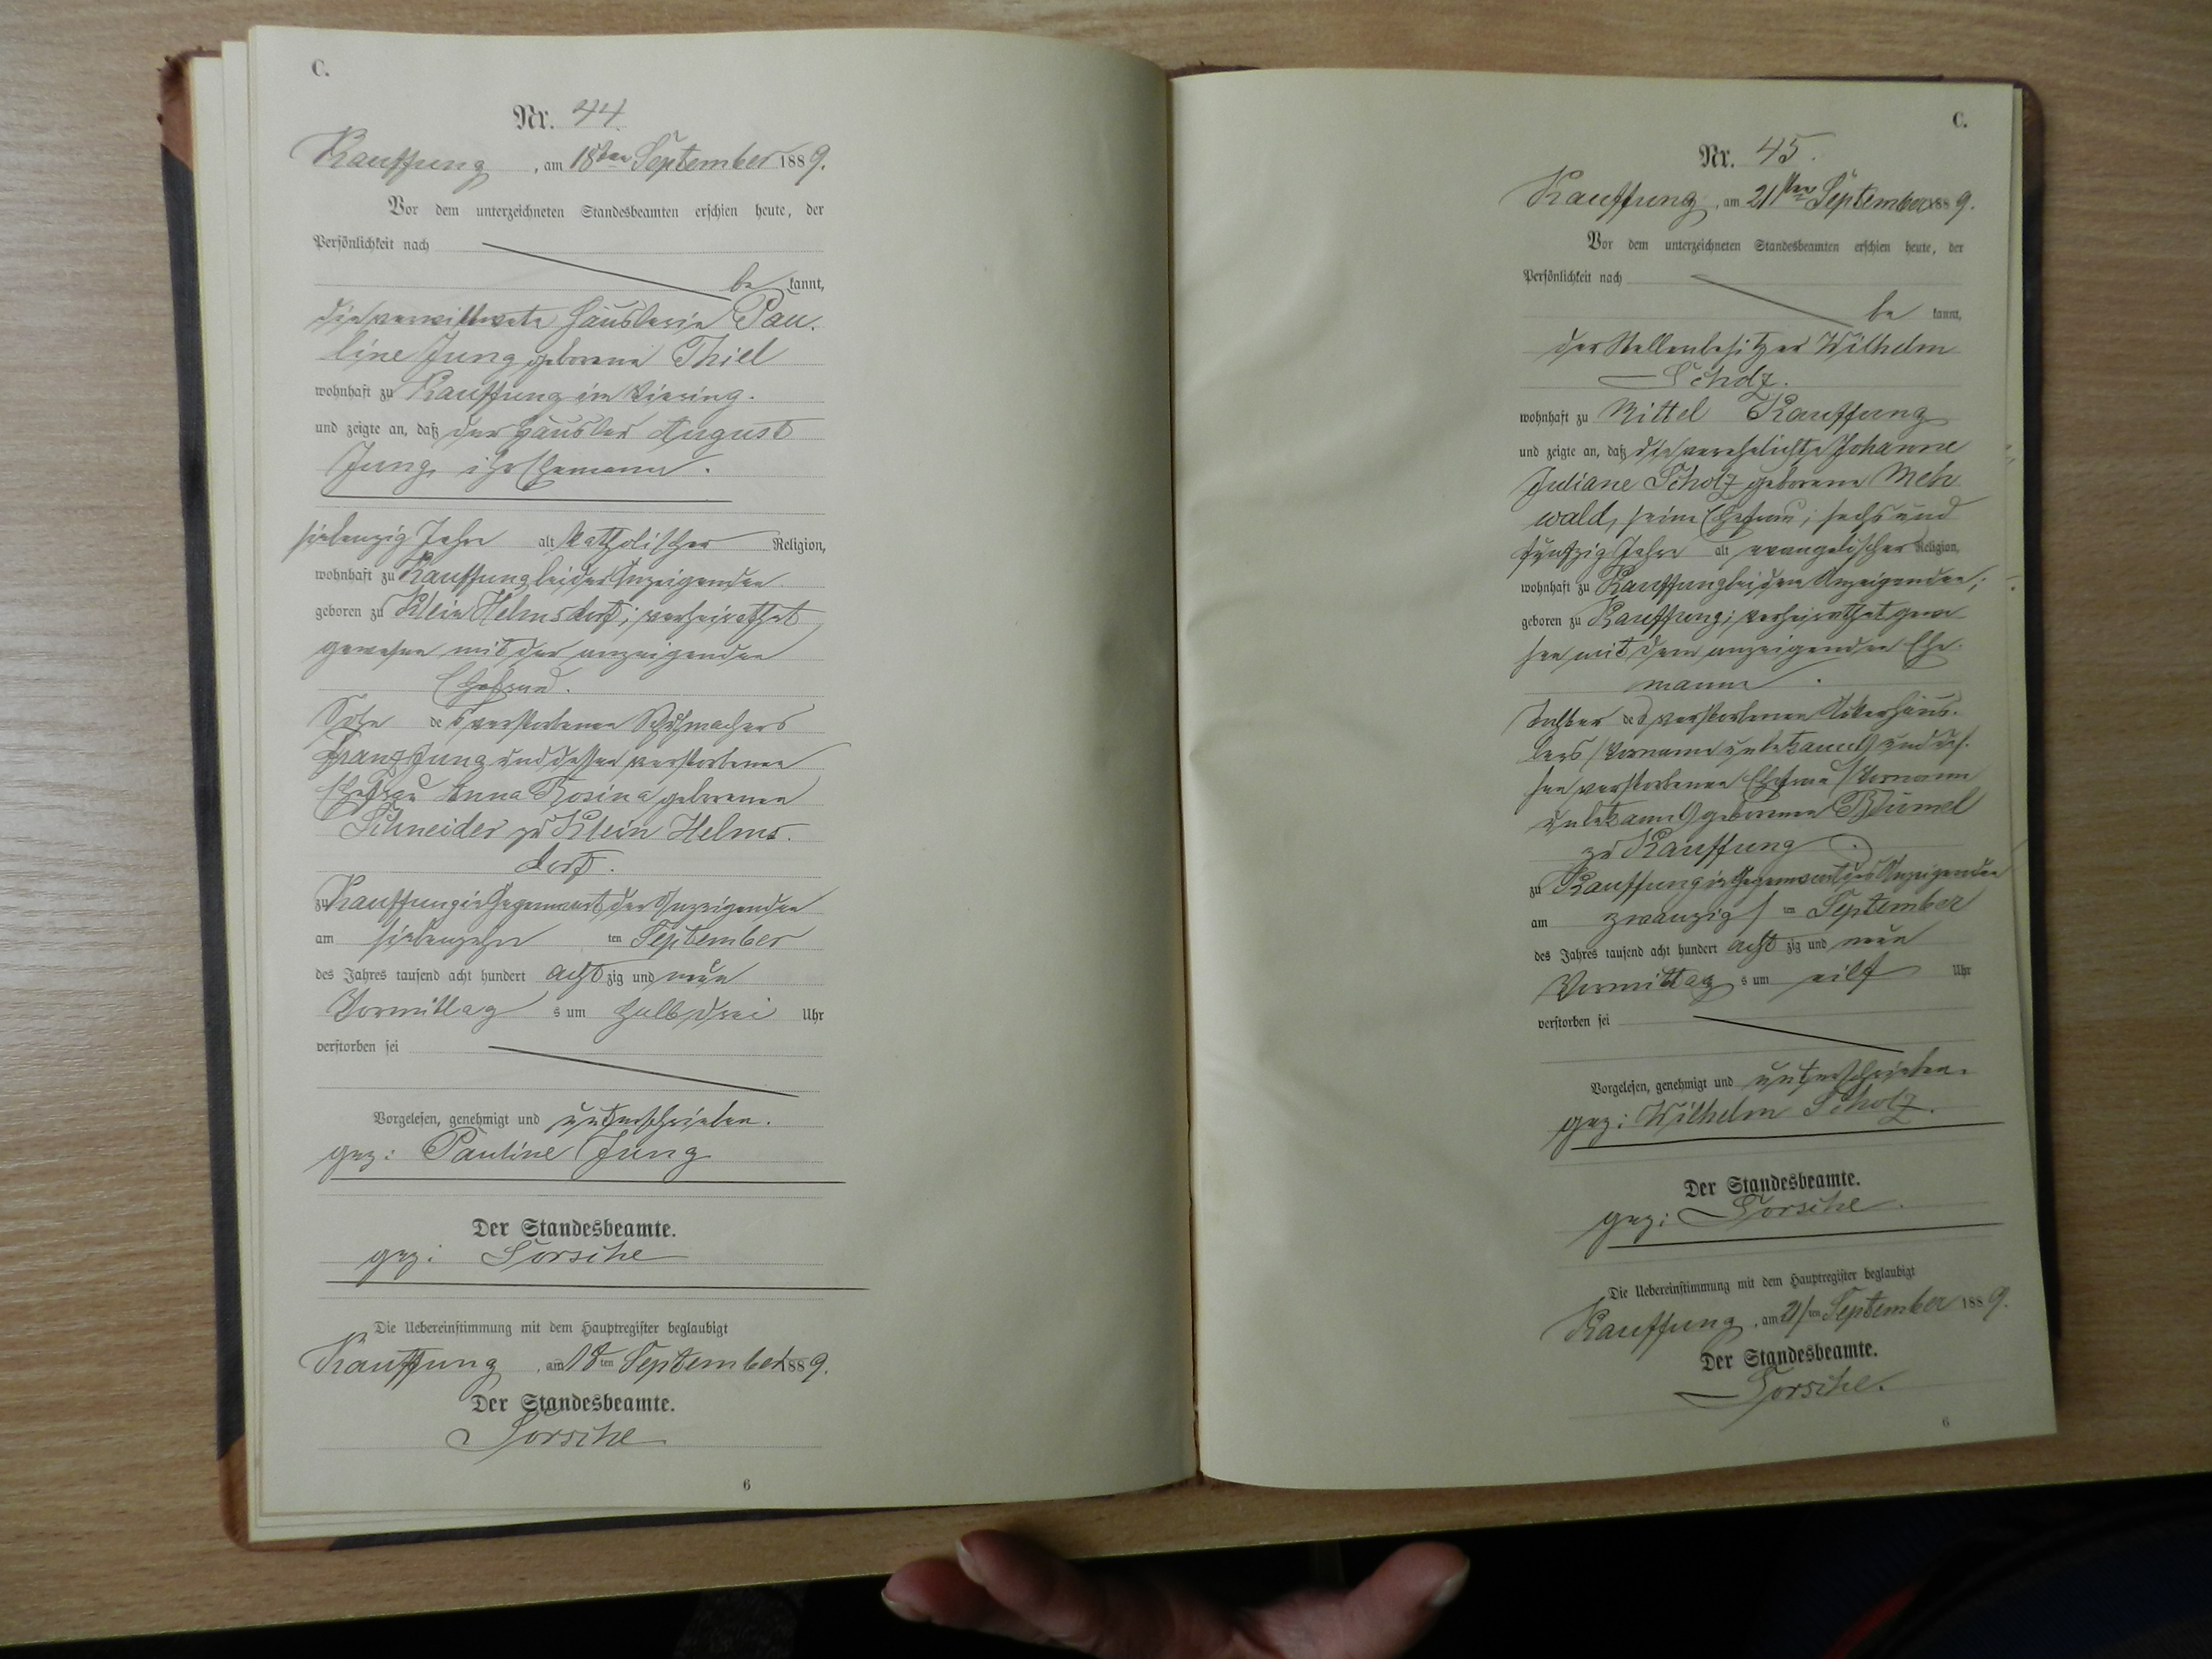 C.
Nr. 44.
Kauffung, am 18ten September 1889.
Vor dem unterzeichneten Standesbeamten erschien heute, der
Persönlichkeit nach
be kannt,
die verwittwete Häuslerin Pau-
line Jung geborene Thiel
wohnhaft zu Kauffung im
und zeigte an, daß der Häusler August
Jung, ihr Ehemann.
siebenzig Jahre alt katholischer Religion,
wohnhaft zu Kauffung bei der Anzeigenden
geboren zu Klein Helmsdorf; verheirathet
gewesen mit der anzeigenden
Ehefrau.
Sohn des verstorbenen Schuhmachers
Franz Jung und dessen verstorbenen
Ehefrau Anna Rosina geborenen
Schneider zu Klein Helms-
dorf.
zu Kauffung in Gegenwart der Anzeigenden
am siebenzehn ten September
des Jahres tausend acht hundert acht zig und neun
Vormittag s um halb drei Uhr
verstorben sei
Vorgelesen, genehmigt und unterschrieben.
gez: Pauline Jung
Der Standesbeamte.
gez: Sorsche
Die Uebereinstimmung mit dem Hauptregister beglaubigt
Kauffung, am 18ten September 1889.
Der Standesbeamte.
Sorsche
6
C.
Nr. 45.
Kauffung, am 21ten September 1889.
Vor dem unterzeichneten Standesbeamten erschien heute, der
Persönlichkeit nach
be kannt,
der Stellenbesitzer Wilhelm
Scholz.
wohnhaft zu Mittel Kauffung
und zeigte an, daß die verehelichte Johanne
Juliane Scholz geborene Meh
wald, seine Ehefrau; sechs und
fünfzig Jahre alt evangelischer Religion,
wohnhaft zu Kauffung bei dem Anzeigenden;
geboren zu Kauffung; verheirathet gewe
sen mit dem anzeigenden Ehe-
manne.
Tochter des verstorbenen Ackerhäus-
lers (Vorname unbekannt) und des-
sen verstorbenen Ehefrau (Vorname
unbekannt) geborenen Blümel
zu Kauffung
zu Kauffung in Gegenwart des Anzeigenden
am zwanzigsten September
des Jahres tausend acht hundert acht zig und neun
Vormittag s um eilf Uhr
verstorben sei
Vorgelesen, genehmigt und unterschrieben.
gez: Wilhelm Scholz.
Der Standesbeamte.
gez: Sorsche.
Die Uebereinstimmung mit dem Hauptregister beglaubigt
Kauffung, am 21ten September 1889.
Der Standesbeamte.
Sorsche.
6